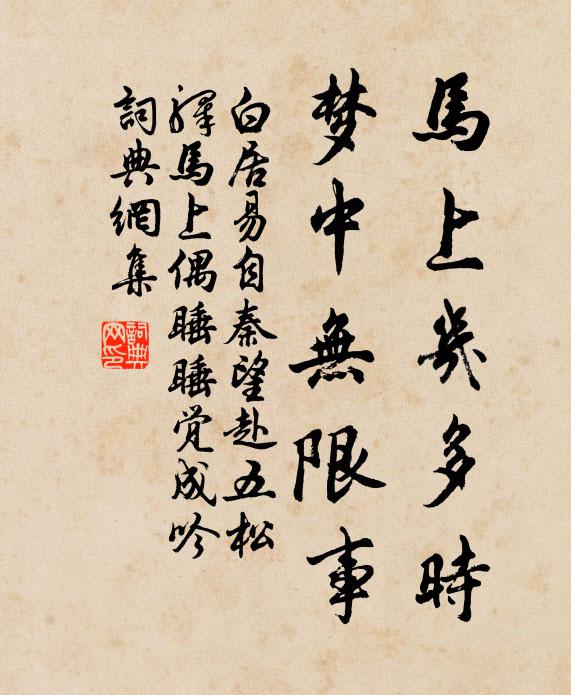 馬上幾多時
梦中無限事
白居易自秦望赴五松
驛馬上偶睡睡觉成吟
詞典網集
詞典网印